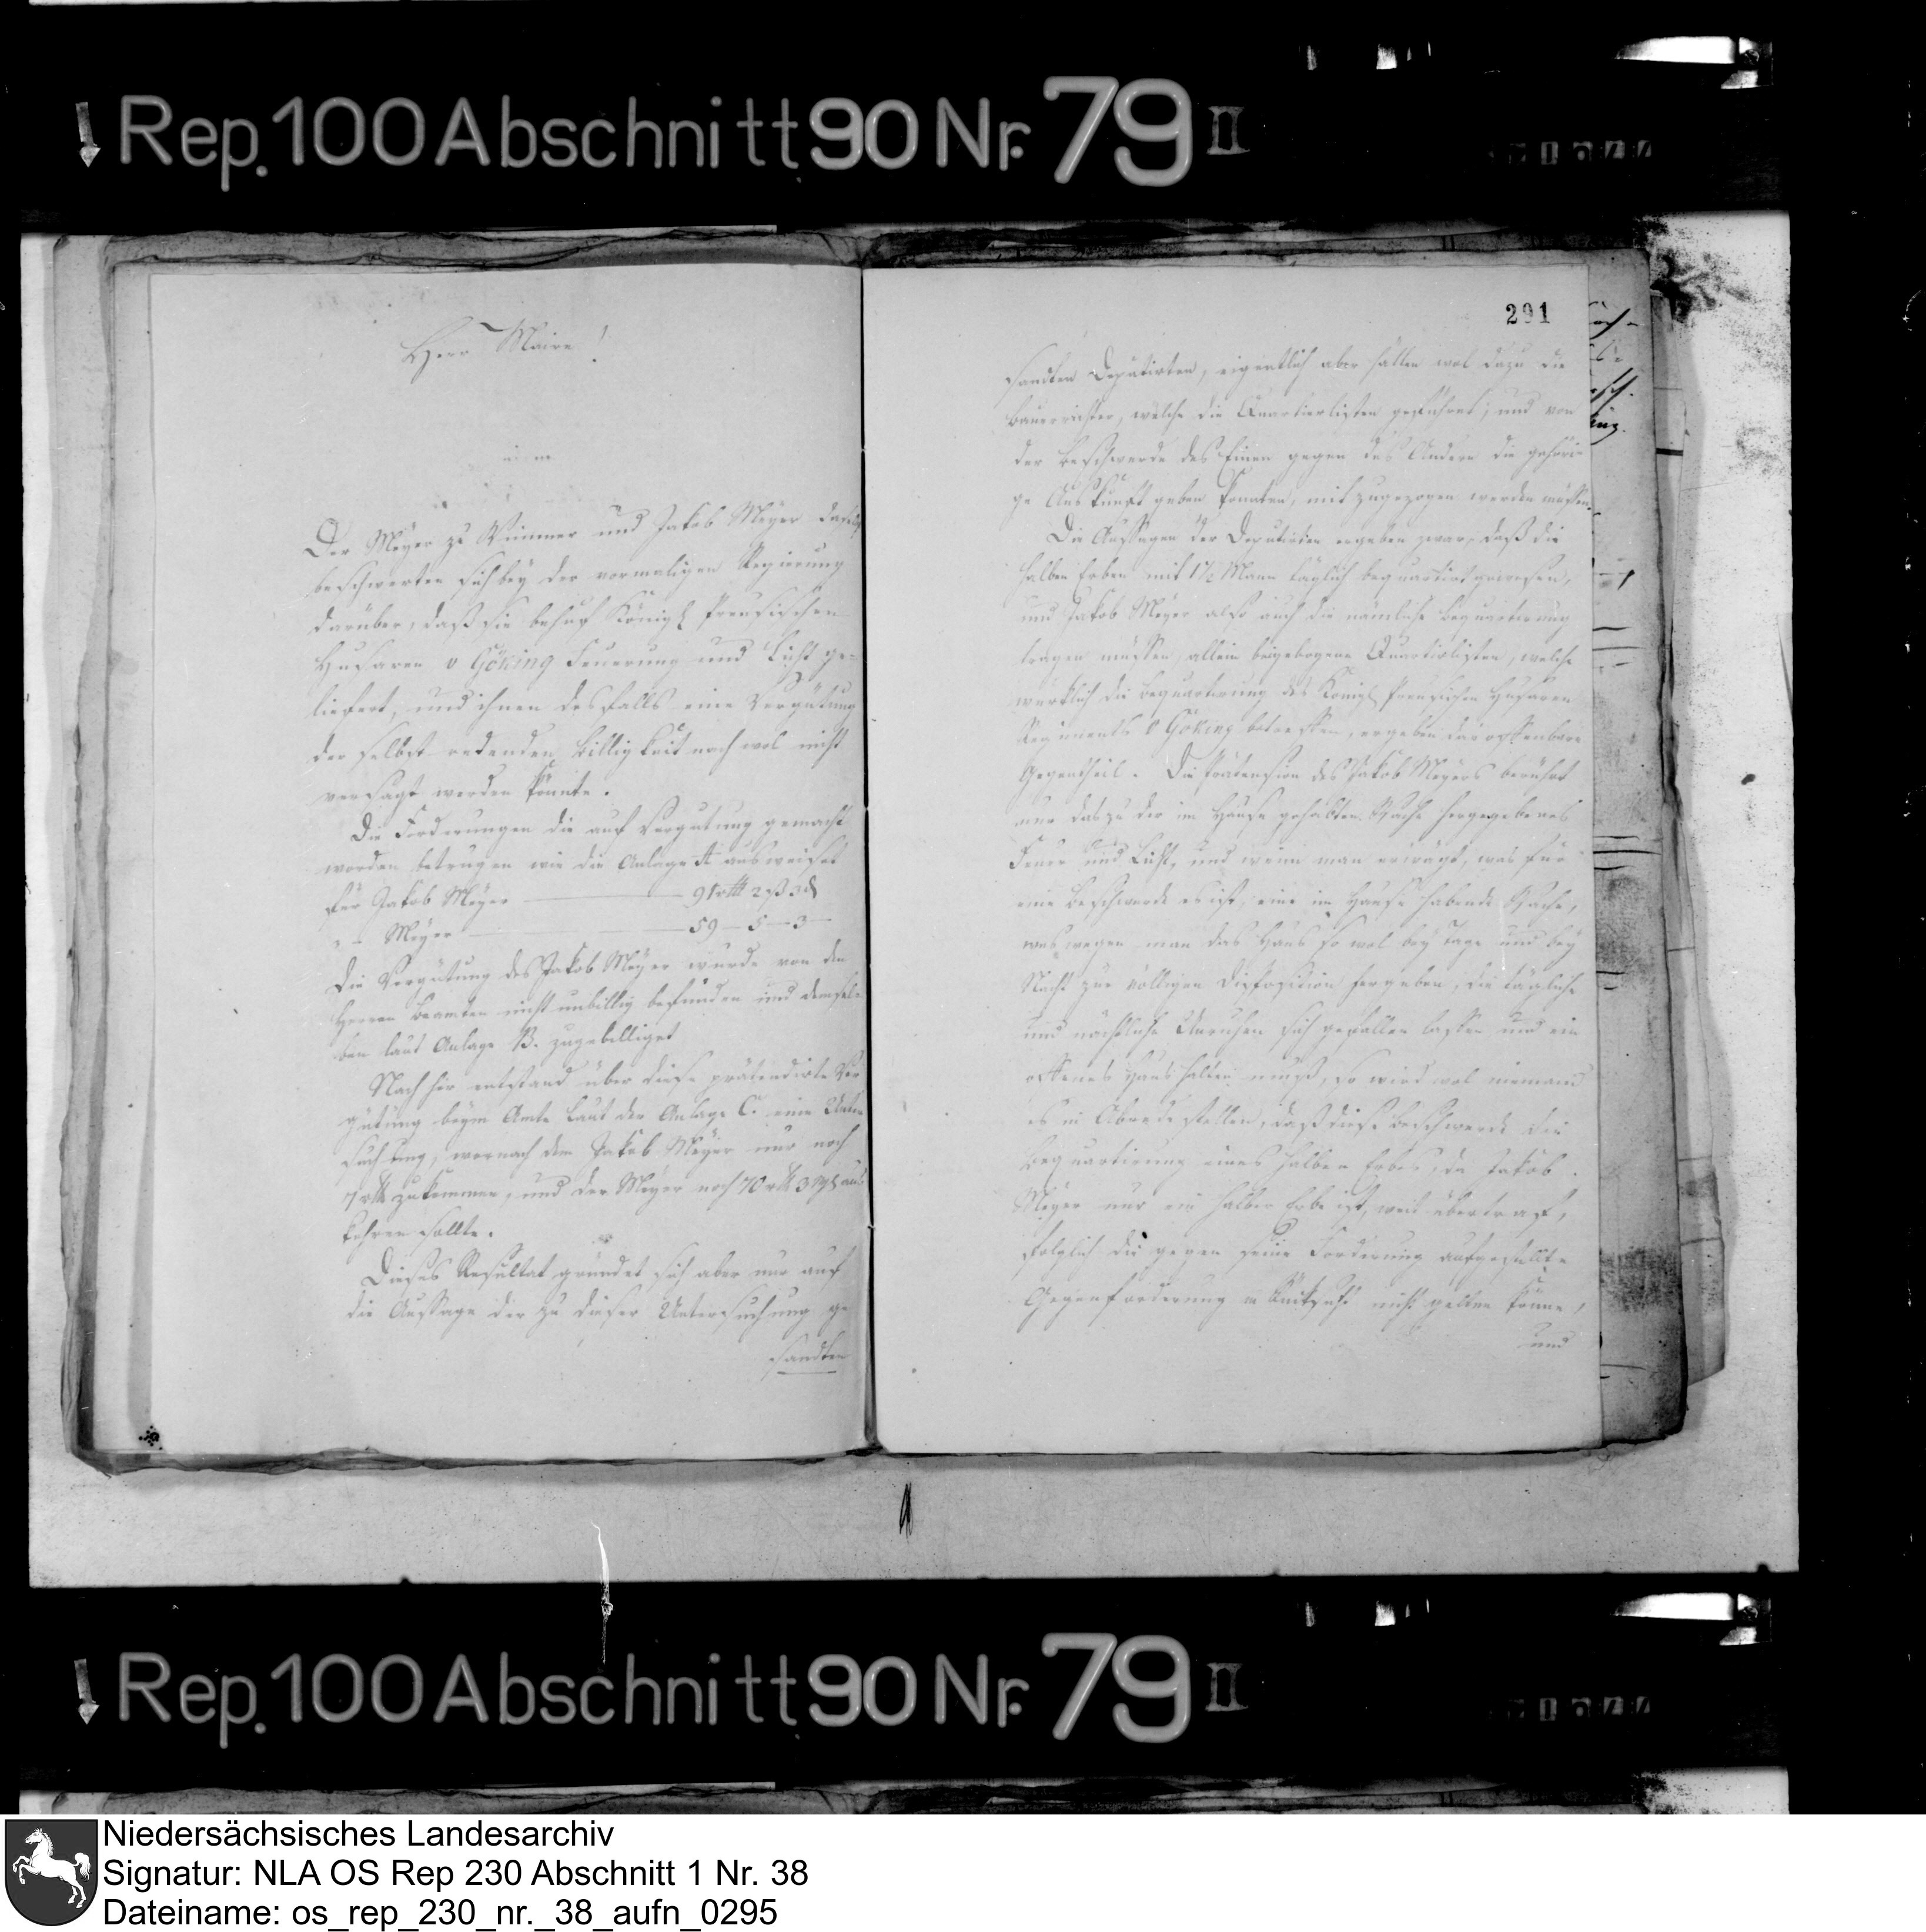 Rep. 100 Abschnitt 90 Nr. 79 II
Herr Maire!
Der Meyer zu Wimmer und Jakob Meyer daselbst
beschwerten sich bey der vormaligen Regierung
darüber, daß sie behuf Königl Preusischen
Husaren v Göking Feuerung und Licht ge-
liefert, und ihnen desfalls eine Vergütung
der selbst redenden Billigkeit nach wol nicht
versagt werden könnte.
Die Forderungen die auf Vergütung gemacht
worden betrugen wie die Anlage A ausweiset
für Jakob Meyer — 91 rtl 2 ß 3 d
" — Meyer — 59 — 5 — 3 —
Die Vergütung des Jakob Meyer wurde von den
Herren Beamten nicht unbillig befunden und demsel-
ben laut Anlage B. zugebilliget
Nach hier entstand über diese prätendirte Ver
gütung beym Amte laut der Anlage C. eine Unter
suchung, wornach dem Jakob Meyer nur noch
7 rtl zukommen, und der Meyer noch 70 rtl 3 aus
kehren sollte.
Dieses Resultat gründet sich aber nur auf
die Aussage der zu dieser Untersuchung ge
sandten
291
sandten Deputirten, eigentlich aber hätten wol dazu die
Bauerrichter, welche die Quartierlisten geführet, und von
der Beschwerde des Einen gegen des Andern die gehöri-
ge Auskunft geben konnten, mit zugezogen werden müssen.
Die Aussagen der Deputirten ergeben zwar, daß die
halben Erben mit 1½ Mann täglich bequartirt gewesen,
und Jakob Meyer also auch die nämliche Bequartierung
tragen müssen, allein beigebogene Quartierlisten, welche
würklich die Bequartierung des Königl Preusischen Husaren
Regiments v Göking betreffen, ergeben das offenbare
Gegentheil. Die Prätension des Jakob Meyers berührt
nur das zu der im Hause gehalten Wache hergegebenes
Feuer und Licht, und wenn man erwägt, was für
eine Beschwerde es ist, eine im Hause habende Wache,
weswegen man das Haus so wol bey Tage und bey
Nacht zur völligen Disposition hergeben, die tägliche
und nächtliche Unruhen sich gefallen lassen und ein
offenes Haus halten muß, so wird wol niemand
es in Abrede stellen, daß diese Beschwerde die
Bequartierung eines halben Erbes, da Jakob
Meyer nur ein halber Erbe ist, weit übertraf,
folglich die gegen seine Forderung aufgestellte
Gegenforderung nicht gelten könne,
und
Rep. 100 Abschnitt 90 Nr. 79 II
Niedersächsisches Landesarchiv
Signatur: NLA OS Rep 230 Abschnitt 1 Nr. 38
Dateiname: os_rep_230_nr._38_aufn_0295